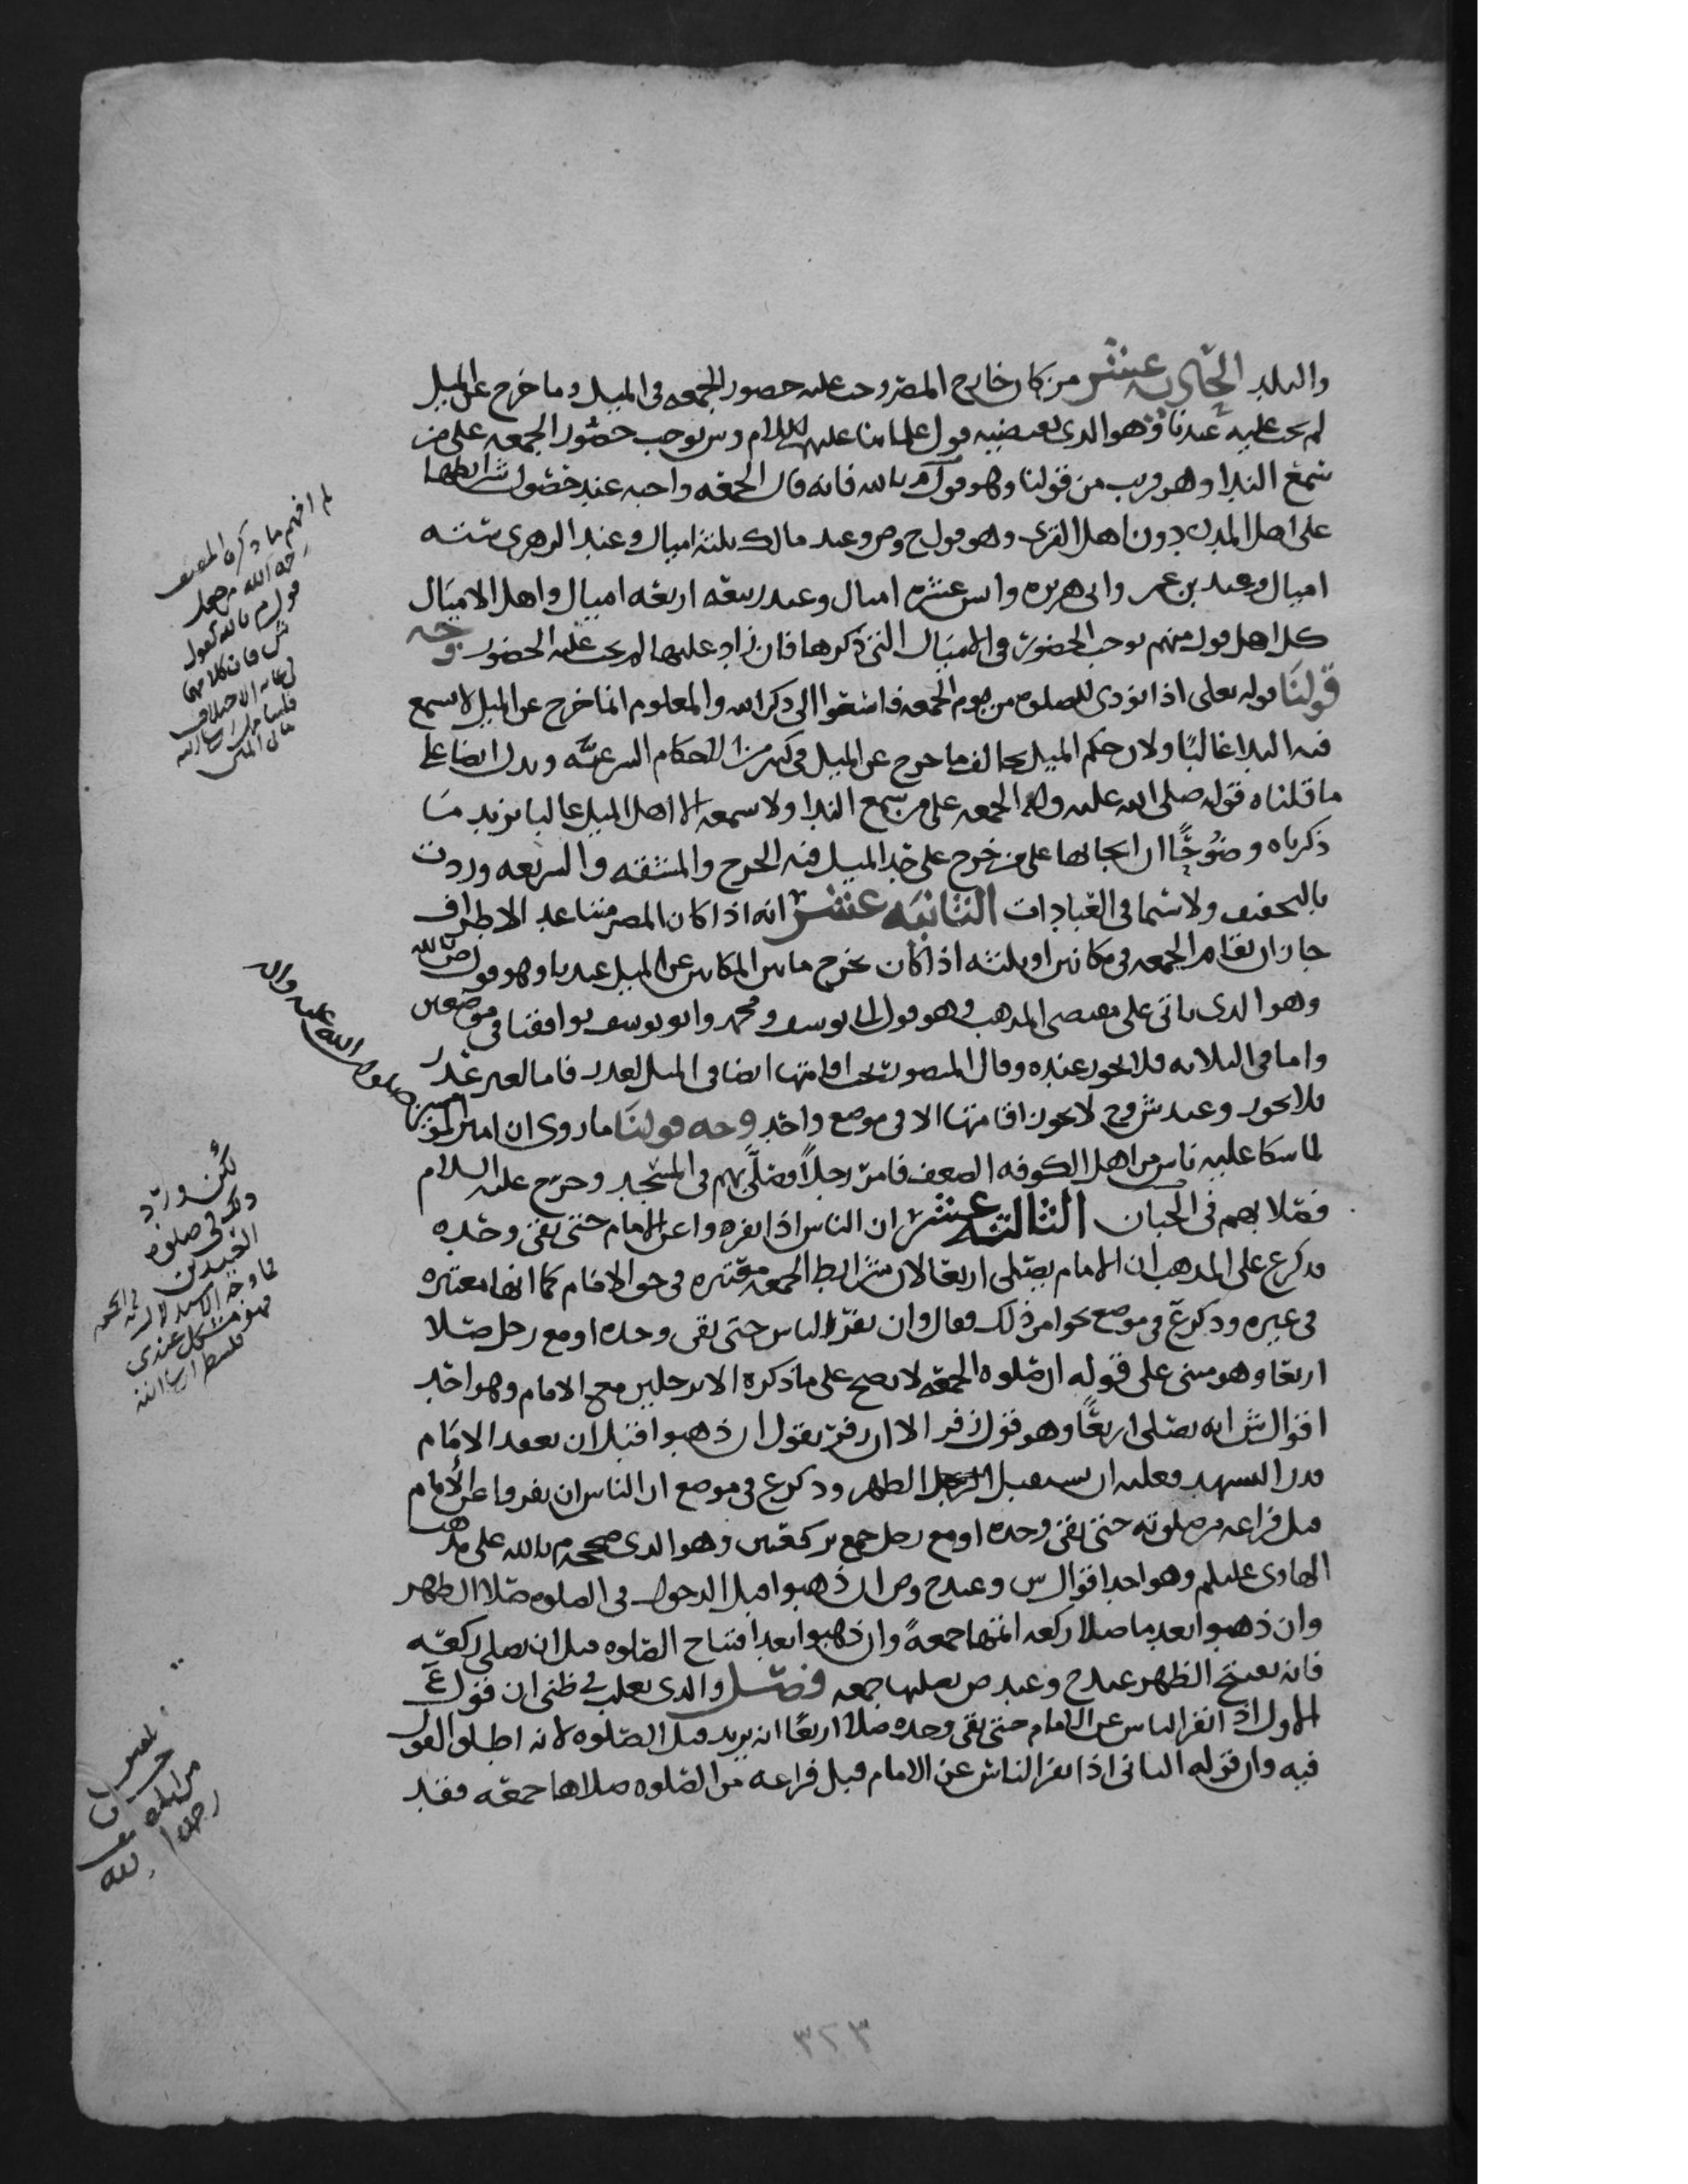 والبلد الحادية عشر من كان خارج المصر وجب عليه حضور الجمعه في الميل وما خرج عن الميل
لم يجب عليه عندنا وهو الذي يقتضيه قول علمائنا عليهم السلام وش يوجب حضور الجمعه على من
سمع الندا وهو قريب من قولنا وهو قول م بالله فانه قال الجمعه واجبه عند حضور شرائطها
على اهل المدن دون اهل القرى وهو قول ح وص وعند مالك ثلثة اميال وعند الزهري ستة
اميال وعند بن عمر وابي هريره وانس عشره اميال وعند ربيعه اربعه اميال واهل الاميال
كل اهل قول منهم يوجب الحضور في الاميال التي ذكرها فان زاد عليها لم يجب عليه الحضور وجه
قولنا قوله تعلى اذا نودى للصلوه من يوم الجمعه فاسعوا الى ذكر الله والمعلوم ان ما خرج عن الميل لا يسمع
فيه الندا غالبًا ولان حكم الميل يخالف ما خرج عن الميل في كثير من الاحكام الشرعيه ويدل ايضا على
ما قلناه قوله صلى الله عليه واله الجمعه على من سمع الندا ولا يسمعه الا اهل الميل غالبا يزيد ما
ذكرناه وضوحًا ان ايجابها على من خرج على حد الميل فيه الحرج والمشقه والشريعه وردت
بالتخفيف ولا سيما في العبادات الثانيه عشر انه اذا كان المصر متباعد الاطراف
جاز ان تقام الجمعه في مكانين او ثلثه اذا كان يخرج ما بين المكانين عن الميل عندنا وهو قول ص بالله
وهو الذي ياتي على مقتضى المذهب وهو قول ابي يوسف ومحمد وابو يوسف يوافقنا في موضعين
واما في الثلاثه فلا يجوز عنده وقال المنصور تجب اقامتها ايضا في الميل لعذر فاما لغير عذر
فلا يجوز وعند ش وح لا يجوز اقامتها الا في موضع واحد وجه قولنا ما روى ان امير المؤمنين صلوات الله عليه واله
لما شكا عليه ناس من اهل الكوفه الضعف فامر رجلاً وصلى بهم في المسجد وخرج عليه السلام
فصلا بهم في الجبان الثالثه عشر ان الناس اذا نفروا عن الامام حتى بقى وحده
ذكر ع على المذهب ان الامام يصلى اربعا لان شرائط الجمعه معتبره في حق الامام كما انها معتبره
في غيره وذكر ع في موضع نحوا من ذلك فقال وان نفر الناس حتى بقى وحده او مع رجل صلا
اربعا وهو مبنى على قوله ان صلوه الجمعه لا تصح على ما ذكره الا برجلين مع الامام وهو احد
اقوال ش انه يصلى اربعًا وهو قول زفر الا ان زفر يقول ان ذهبوا قبل ان يقعد الامام
قدر التشهد فعليه ان يستقبل الظهر وذكر ع في موضع ان الناس ان نفروا عن الامام
قبل فراغه من صلوته حتى بقى وحده او مع رجل جمع بركعتين وهو الذي صححه م بالله على مذهب
الهادى عليلم وهو احد اقوال ش وعند ح وص ان ذهبوا قبل الدخول في الصلوه صلا الظهر
وان ذهبوا بعد ما صلا ركعه اتمها جمعةً وان ذهبوا بعد افتتاح الصلوه قبل ان يصلى ركعه
فانه يفتتح الظهر عند ح وعند ص يصليها جمعه فصل والذي يغلب في ظنى ان قول ع
الاول اذا نفر الناس عن الامام حتى بقى وحده صلا اربعًا انه يريد قبل الصلوه لانه اطلق القول
فيه وان قوله الثانى اذا نفر الناس عن الامام قبل فراغه من الصلوه صلاها جمعه فقد
لم افهم ما ذكره المصنف
رحمه الله من جعل
قول م بالله كقول
ش فان كلامهما
في غايه الاختلاف
فلينظر
لكن ورد
ذلك في صلوه
العيدين
فما وجه الاستدلال به في الجمعه
فهو مشكل عندى
فلينظر ان شا الله
٣٢٣